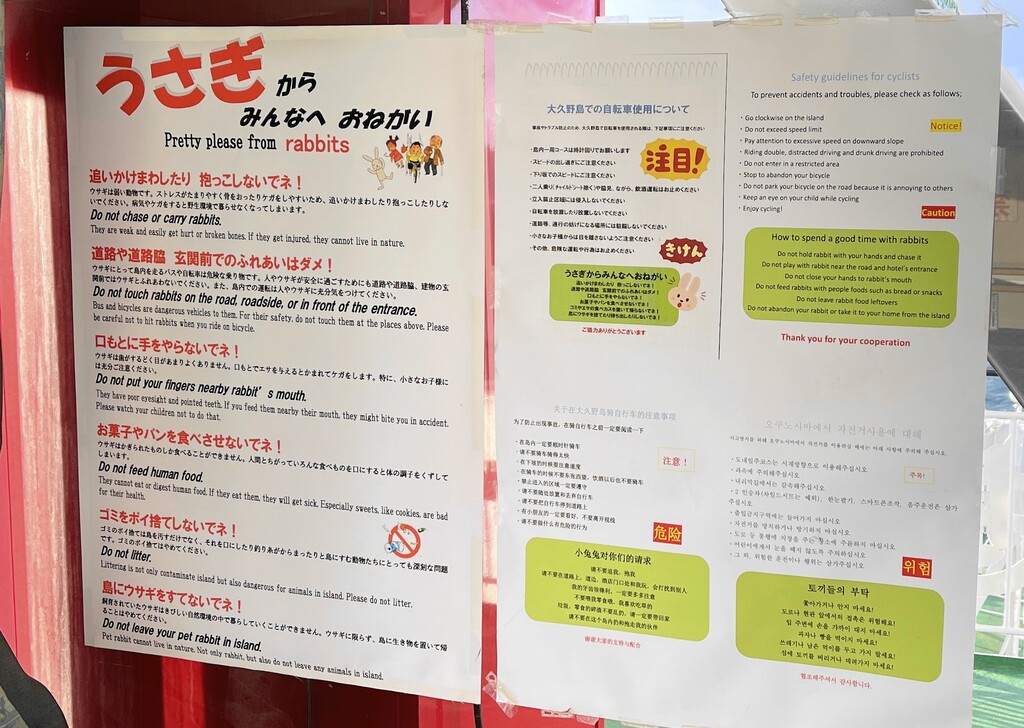 うさぎから
みんなへ おねがい
Pretty please from rabbits
追いかけまわしたり 抱っこしないでネ！
ウサギは弱い動物です。ストレスがたまりやすく骨をおったりケガをしやすいため、追いかけまわしたり抱っこしたりしな
いでください。病気やケガをすると野生環境で暮らせなくなってしまいます。
Do not chase or carry rabbits.
They are weak and easily get hurt or broken bones. If they get injured, they cannot live in nature.
道路や道路脇 玄関前でのふれあいはダメ！
ウサギにとって島内を走るバスや自転車は危険な乗り物です。人やウサギが安全に過ごすためにも道路や道路脇、建物の玄
関前ではウサギとふれあわないでください。また、島内での運転は人やウサギに充分気をつけてください。
Do not touch rabbits on the road, roadside, or in front of the entrance.
Bus and bicycles are dangerous vehicles to them. For their safety, do not touch them at the places above. Please
be careful not to hit rabbits when you ride on bicycle.
口もとに手をやらないでネ！
ウサギは歯がするどく目があまりよくありません。口もとでエサを与えるとかまれてケガをします。特に、小さなお子様に
は充分ご注意ください。
Do not put your fingers nearby rabbit's mouth.
They have poor eyesight and pointed teeth. If you feed them nearby their mouth, they might bite you in accident.
Please watch your children not to do that.
お菓子やパンを食べさせないでネ！
ウサギはかぎられたものしか食べることができません。人間とちがっていろんな食べものを口にすると体の調子をくずして
しまいます。
Do not feed human food.
They cannot eat or digest human food. If they eat them, they will get sick. Especially sweets, like cookies, are bad
for their health.
ゴミをポイ捨てしないでネ！
ゴミのポイ捨ては島を汚すだけでなく、それを口にしたり釣り糸がからまったりと島にすむ動物たちにとっても深刻な問題
です。ゴミのポイ捨てはやめてください。
Do not litter.
Littering is not only contaminate island but also dangerous for animals in island. Please do not litter.
島にウサギをすてないでネ！
飼育されていたウサギはきびしい自然環境の中で暮らしていくことができません。ウサギに限らず、島に生き物を置いて帰
ることはやめてください。
Do not leave your pet rabbit in island.
Pet rabbit cannot live in nature. Not only rabbit, but also do not leave any animals in island.
大久野島での自転車使用について
事故やトラブル防止のため、大久野島で自転車を使用される際は、下記事項にご注意ください
・島内一周コースは時計回りでお願いします
・スピードの出し過ぎにご注意ください
・下り坂でのスピードにご注意ください
・二人乗り(チャイルドシート除く)や脇見、ながら、飲酒運転はお止めください
・立入禁止区域には侵入しないでください
・自転車を放置したり放置しないでください
・道路等、通行の妨げになる場所には駐輪しないでください
・小さなお子様からは目を離さないようご注意ください
・その他、危険な運転や行為はお止めください
注目！
きけん
うさぎからみんなへおねがい
追いかけまわしたり 抱っこしないでネ！
道路や道路脇 玄関前でのふれあいはダメ！
口もとに手をやらないでネ！
お菓子やパンを食べさせないでネ！
ご協力ありがとうございます
Safety guidelines for cyclists
To prevent accidents and troubles, please check as follows;
・Go clockwise on the island
・Do not exceed speed limit
・Pay attention to excessive speed on downward slope
・Riding double, distracted driving and drunk driving are prohibited
・Do not enter in a restricted area
・Stop to abandon your bicycle
・Do not park your bicycle on the road because it is annoying to others
・Keep an eye on your child while cycling
・Enjoy cycling!
Notice!
Caution
How to spend a good time with rabbits
Do not hold rabbit with your hands and chase it
Do not play with rabbit near the road and hotel's entrance
Do not close your hands to rabbit's mouth
Do not feed rabbits with people foods such as bread or snacks
Do not leave rabbit food leftovers
Do not abandon your rabbit or take it to your home from the island
Thank you for your cooperation
关于在大久野岛骑自行车的注意事项
为了防止出现事故，在骑自行车之前一定要阅读一下
・在岛内一定要顺时针骑车
・请不要骑车骑得太快
・在下坡的时候要注意速度
・在骑车的时候不要东张西望，饮酒以后也不要骑车
・禁止进入的区域一定要遵守
・请不要随处放置和丢弃自行车
・请不要把自行车停到道路上
・有小朋友的一定要看好，不要离开视线
・请不要做什么有危险的行为
注意！
危险
小兔兔对你们的请求
请不要追我，抱我
请不要在道路上，道边，酒店门口处和我玩，会打扰到别人
我的牙齿很锋利，一定要多多注意
不要喂我零食哦，我喜欢吃草的
垃圾，零食的碎渣不要乱扔，请一定要带回家
请不要在这个岛内扔和抱走我的伙伴
谢谢大家的支持与配合
오쿠노시마에서 자전거사용에 대해
・도내일주코스는 시계방향으로 이용해주십시오
・과속에 주의하십시오
・내리막길에서는 감속해주십시오
・출입금지구역에는 들어가지 마십시오
・자전거를 방치하거나 방기하지 마십시오
・어린이에게서 눈을 떼지 않도록 주의하십시오
・그 외, 위험한 운전이나 행위는 삼가주십시오
주목!
위험
토끼들의 부탁
쫓아가거나 안지 마세요!
도로나 현관 앞에서의 접촉은 위험해요!
입 주변에 손을 가까이 대지 마세요!
과자나 빵을 먹이지 마세요!
쓰레기나 남은 먹이를 두고 가지 말세요!
섬에 토끼를 버리거나 데려가지 마세요!
협조해주셔서 감사합니다.